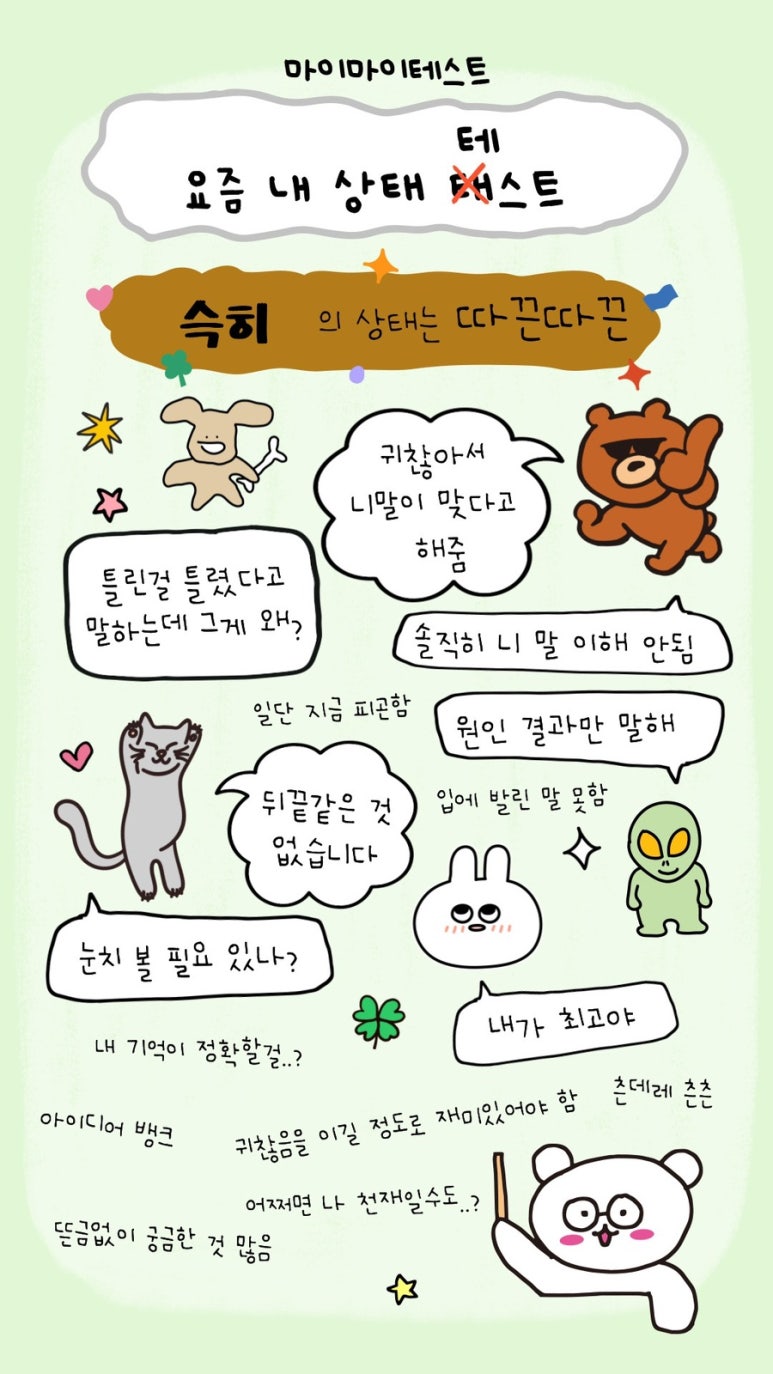 마이마이테스트
테
요즘 내 상태 태스트
슥히 의 상태는 따끈따끈
귀찮아서
니말이 맞다고
해줌
틀린걸 틀렸다고
말하는데 그게 왜?
솔직히 니 말 이해 안됨
일단 지금 피곤함
원인 결과만 말해
뒤끝같은 것
없습니다
입에 발린 말 못함
눈치 볼 필요 있나?
내가 최고야
내 기억이 정확할걸..?
츤데레 츤츤
아이디어 뱅크
귀찮음을 이길 정도로 재미있어야 함
어쩌면 나 천재일수도..?
뜬금없이 궁금한 것 많음